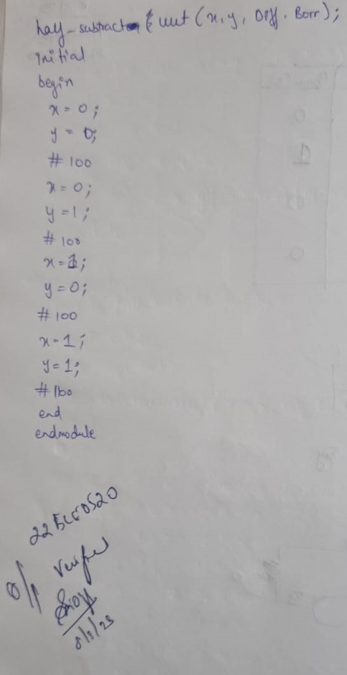 half-subtractor uut (x, y, Diff, Borr);
initial
begin
x = 0;
y = 0;
# 100
x = 0;
y = 1;
# 100
x = 1;
y = 0;
# 100
x = 1;
y = 1;
# 100
end
endmodule
22BCE0520